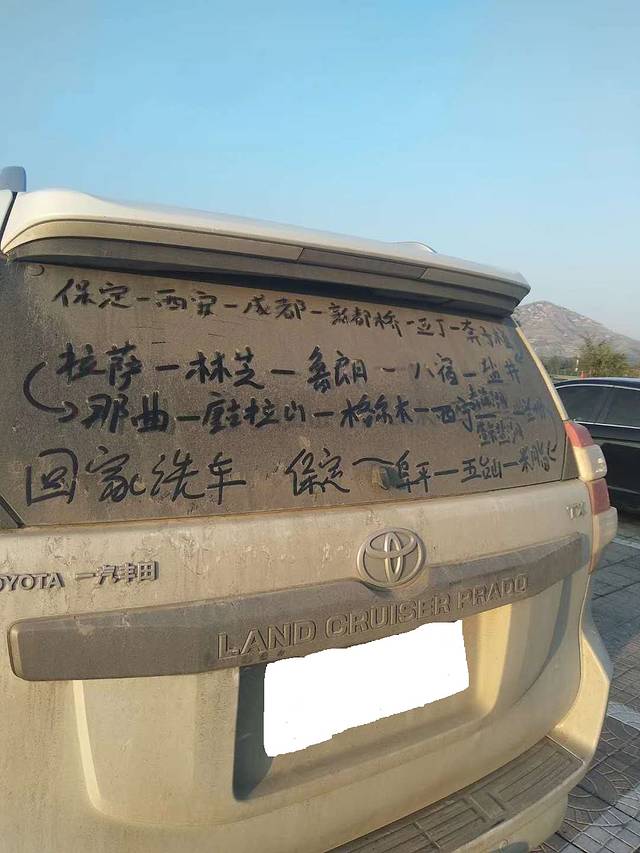 保定-西安-成都-新都桥-亚丁-奔子栏
拉萨-林芝-鲁朗-八宿-盐井
那曲-唐古拉山-格尔木-西宁
回家洗车 保定 阜平-五台山-米脂
TOYOTA 一汽丰田
TX
LAND CRUISER PRADO